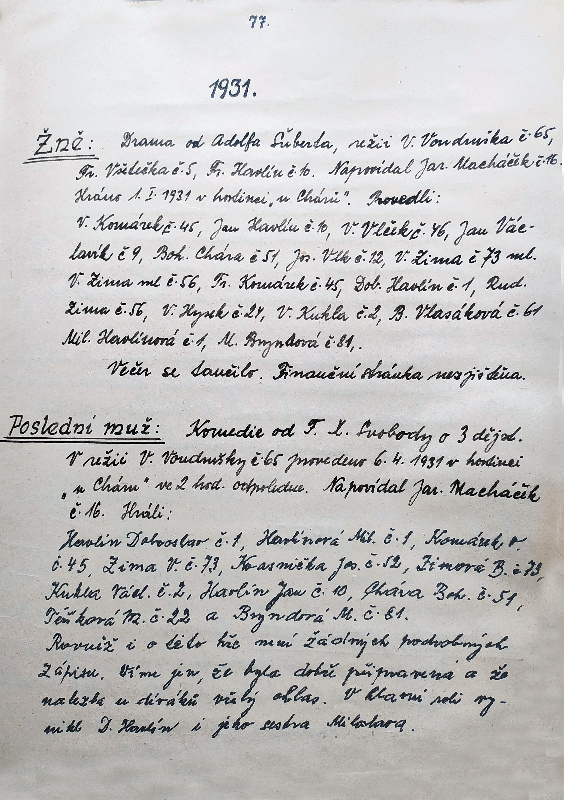 77.
1931.
Žně: Drama od Adolfa Šuberta, režii V. Voudruška č. 65,
Fr. Všetečka č. 5, Fr. Havlín č. 10. Napovídal Jar. Macháček č. 16.
Hráno 1. I. 1931 v hostinci "u Chárů". Provedli:
V. Komárek č. 45, Jan Havlín č. 10, V. Vlček č. 46, Jan Vác-
lavík č 9, Boh. Chára č 51, Jos. Vlk č. 12, V. Zima č 73 ml.
V. Zima ml č. 56, Fr. Komárek č. 45, Dob. Havlín č. 1, Rud.
Zima č. 56, V. Hysek č. 24, V. Kukla č. 2, B. Vlasáková č. 61
Mil. Havlínová č. 1, M. Bryndová č. 81,.
Večer se tančilo. Finanční stránka nezjištěna.
Poslední muž: Komedie od F. X. Svobody o 3 dějst.
V režii V. Voudrušky č 65 provedeno 6. 4. 1931 v hostinci
"u Chárů" ve 2 hod. odpoledne. Napovídal Jar. Macháček
č. 16. Hráli:
Havlín Dobroslav č. 1, Havlínová Mil. č. 1, Komárek V.
č. 45, Zima V. č. 73, Krasnička Jos. č. 52, Zimová B. č 73,
Kukla Václ. č. 2, Havlín Jan č. 10, Chára Boh. č. 51,
M. č. 22 a Bryndová M. č. 81.
Rovněž i o této hře není žádných podrobných
zápisů. Víme jen, že byla dobře připravena a že
nalezla u diváků vřelý ohlas. V hlavní roli vy-
nikl D. Havlín i jeho sestra Miloslava.